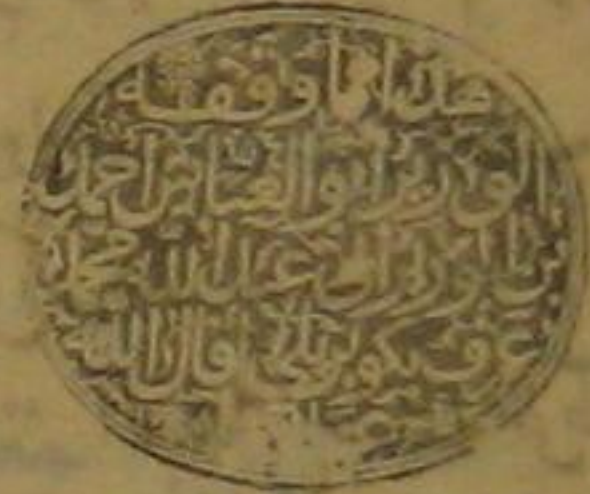 هذا ما وقفه
الوزير ابو العباس احمد
بن الوزير ابى عبد الله محمد
عرف بكوبريلى اقال الله